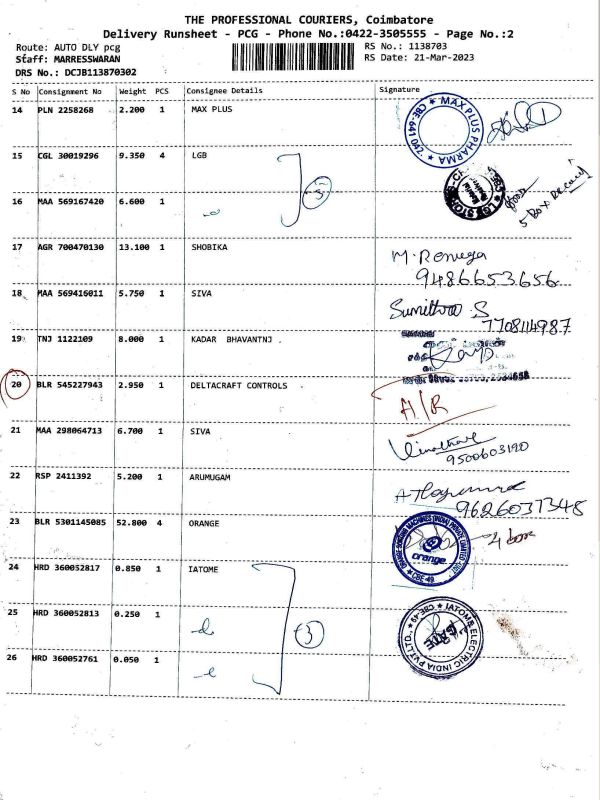 THE PROFESSIONAL COURIERS, Coimbatore
Delivery Runsheet - PCG - Phone No.:0422-3505555 - Page No.:2
Route: AUTO DLY pcg RS No.: 1138703
Staff: MARRESSWARAN RS Date: 21-Mar-2023
DRS No.: DCJB113870302
S No Consignment No Weight PCS Consignee Details Signature
14 PLN 2258268 2.200 1 MAX PLUS
MAX PLUS PHARMA CBE-641042
15 CGL 30019296 9.350 4 LGB
5
5 Box Received
16 MAA 569167420 6.600 1
17 AGR 700470130 13.100 1 SHOBIKA M. Renuga
9486653656
18 MAA 569416011 5.750 1 SIVA Sunithra S
7708114987
19 TNJ 1122109 8.000 1 KADAR BHAVANTNJ .
20 BLR 545227943 2.950 1 DELTACRAFT CONTROLS A/R
21 MAA 298064713 6.700 1 SIVA
9500603190
22 RSP 2411392 5.200 1 ARUMUGAM
9626037348
23 BLR 5301145085 52.800 4 ORANGE
orange CBE-49
4 box
24 HRD 360052817 0.850 1 IATOME
25 HRD 360052813 0.250 1 3
IATOME ELECTRIC INDIA PVT LTD. CBE-49 GATE
26 HRD 360052761 0.050 1